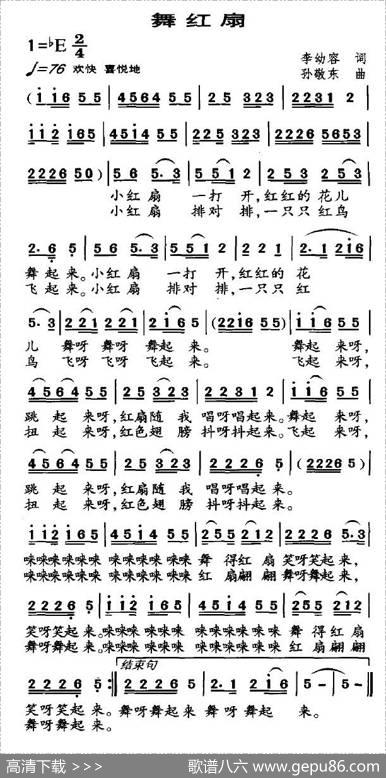 舞红扇
1=♭E 2/4
♩=76 欢快 喜悦地
李幼容 词
孙敬东 曲
(i i6 5 5 | 4564 5 5 | 2 5 323 | 2231 2 |
i i2 i65 | 4564 5 5 | 225 323 | 2226 5653 |
2226 50) | 5 6 5·3 | 5 5i 2 | 253 253 |
小红扇 一打 开,红红的 花儿
小红扇 排对 排,一只只 红鸟
2·6 5 | 56 5·3 | 551 2 | 2 2 2 | 2·1 2i6 |
舞起来。小红扇 一打 开,红红的 花
飞起来。小红扇 排对 排,一只只 红
5·3 | 2 21 2 21 | 2i6 5 | (22i6 5 5) | i i6 5 5 |
儿 舞呀 舞呀 舞起 来。 舞起 来呀,
鸟 飞呀 飞呀 飞起 来。 飞起 来呀,
4564 5 5 | 25 323 | 2231 2 | i i6 5 5 |
跳 起 来呀,红扇随 我 唱呀唱起来。舞起 来呀,
扭 起 来呀,红色翅 膀 抖呀抖起来。飞起 来呀,
4564 5 5 | 25 323 | 2226 5 | (2226 5) |
跳 起 来呀,红扇随 我 唱呀唱起来。
扭 起 来呀,红色翅 膀 抖呀抖起来。
i i2 i65 | 45i4 5 5 | 255 212 | 2226 5·3 |
咪咪咪咪咪咪 咪咪咪 咪咪 舞 得红 扇 笑呀笑起来,
咪咪咪咪咪咪 咪咪咪 咪咪 红 扇翩 翩 舞呀舞起来,
2226 5 | i i2 i65 | 45i4 5 5 | 255 212 |
笑呀笑起来。咪咪咪咪咪咪 咪咪咪 咪咪 舞 得红 扇
舞呀舞起来。咪咪咪咪咪咪 咪咪咪 咪咪 红 扇翩 翩
结束句
2226 5 :| 2226 5·3 | 2226 5 | 2·1 2i6 | 5 - | 5 - ‖
笑呀笑起来。舞呀舞起来 舞呀舞起 来。
舞呀舞起来。
高清下载 >>>
歌谱八六 www.gepu86.com